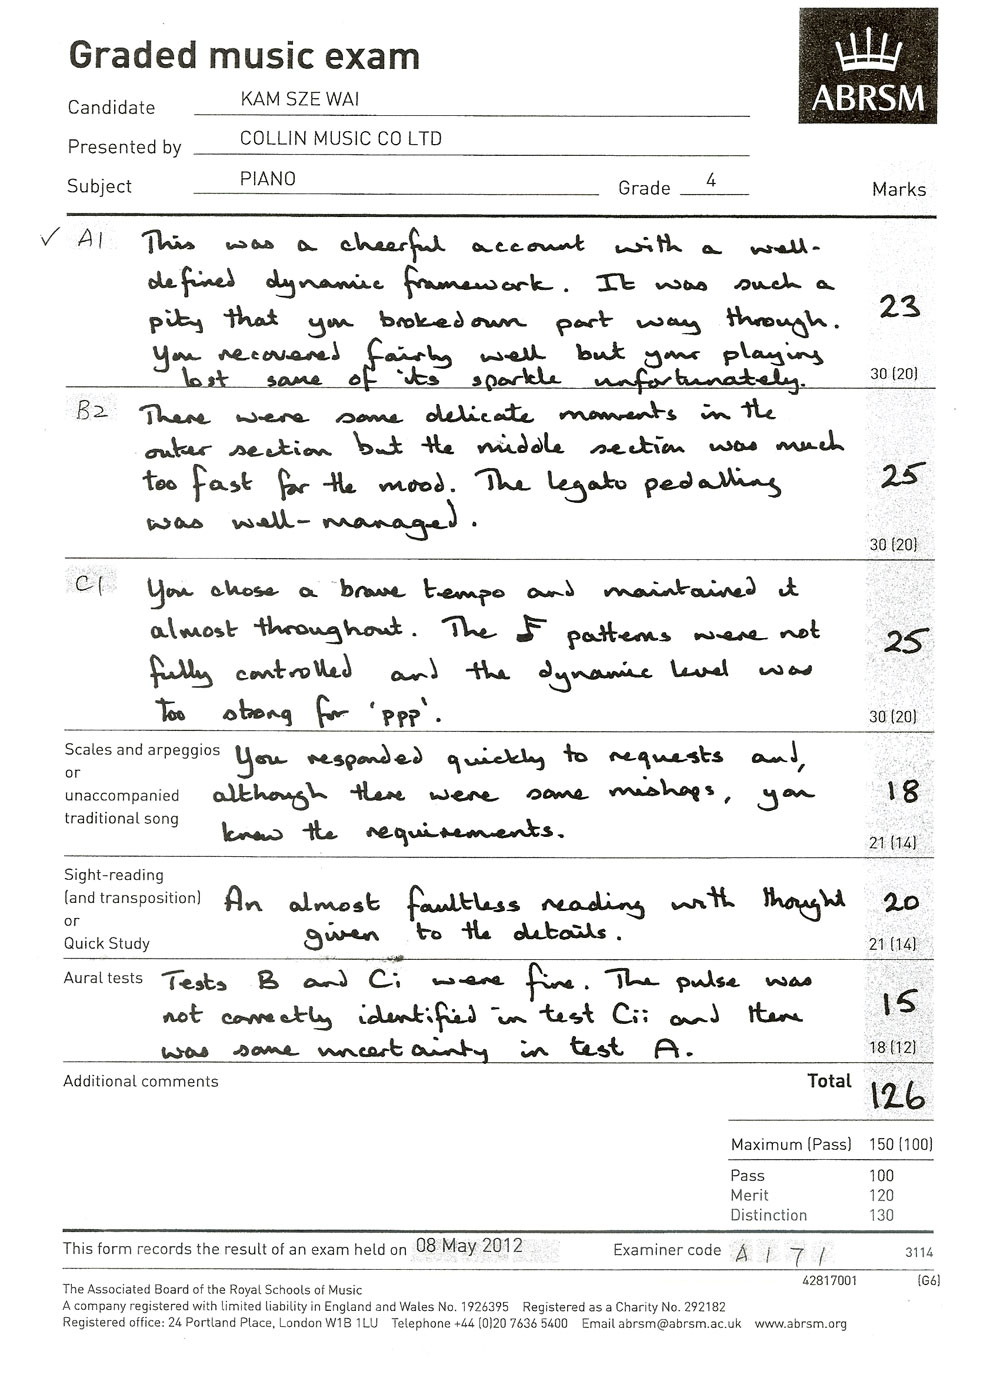 Graded music exam
ABRSM
Candidate KAM SZE WAI
Presented by COLLIN MUSIC CO LTD
Subject PIANO Grade 4 Marks
✓ A1 This was a cheerful account with a well-
defined dynamic framework. It was such a
pity that you brokedown part way through.
You recovered fairly well but your playing
lost some of its sparkle unfortunately.
23
30 (20)
B2 There were some delicate moments in the
outer section but the middle section was much
too fast for the mood. The legato pedalling
was well-managed.
25
30 (20)
C1 You chose a brave tempo and maintained it
almost throughout. The ♪ patterns were not
fully controlled and the dynamic level was
too strong for 'ppp'.
25
30 (20)
Scales and arpeggios
or
unaccompanied
traditional song
You responded quickly to requests and,
although there were some mishaps, you
knew the requirements.
18
21 (14)
Sight-reading
(and transposition)
or
Quick Study
An almost faultless reading with thought
given to the details.
20
21 (14)
Aural tests Tests B and Ci were fine. The pulse was
not correctly identified in test Cii and there
was some uncertainty in test A.
15
18 (12)
Additional comments
Total 126
Maximum (Pass) 150 (100)
Pass 100
Merit 120
Distinction 130
This form records the result of an exam held on 08 May 2012 Examiner code A171 3114
42817001 (G6)
The Associated Board of the Royal Schools of Music
A company registered with limited liability in England and Wales No. 1926395 Registered as a Charity No. 292182
Registered office: 24 Portland Place, London W1B 1LU Telephone +44 (0)20 7636 5400 Email abrsm@abrsm.ac.uk www.abrsm.org